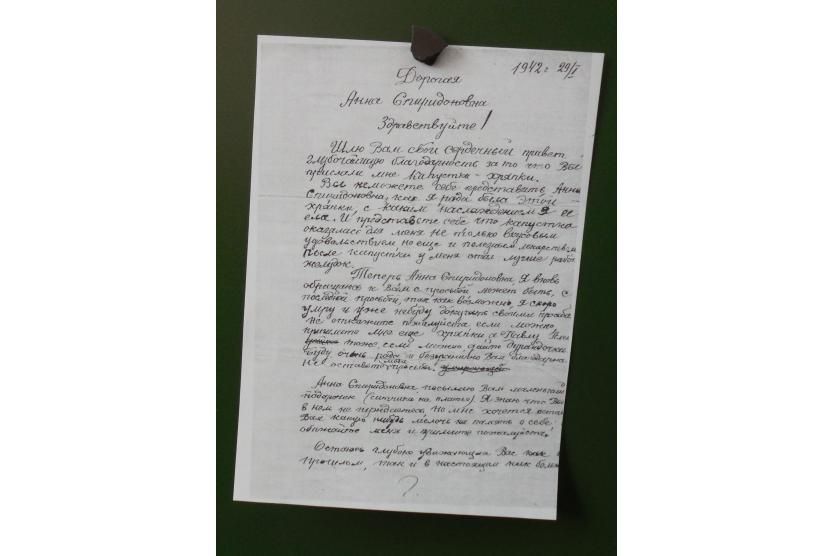 1942 г 29/I
Дорогая
Анна Спиридоновна
Здравствуйте!
Шлю Вам свой сердечный привет,
глубочайшую благодарность за то что Вы
прислали мне капустки - хряпки.
Вы неможете себе представить, Анна
Спиридоновна, как я рада была этой
хряпки, с каким наслаждением я ее
ела. И представьте себе что капустка
оказалась для меня не только вкусовым
удовольствием, но еще и полезным лекарством
После капустки у меня стал лучше
желудок.
Теперь Анна Спиридоновна, Я вновь
обращаюсь к Вам с просьбой может быть, с
последней просьбой, так как возможно, я скоро
умру и уже небуду докучать своими
Не откажите пожалуйста если можно,
пришлите мне еще хряпки, а Павлу
тоже, если можно дайте дурандочки
Буду очень рада и безгранично Вам благодарна
Не оставьте моей просьбы.
Анна Спиридоновна посылаю Вам маленький
подарочек (ситчика на платье). Я знаю что Вы
в нем не нуждаетесь, Но мне хочется
Вам какую нибудь мелочь на память о себе,
обижайте меня и примите пожалуйста.
Остаюсь глубоко уважающая Вас как
прошлом, так и в настоящем